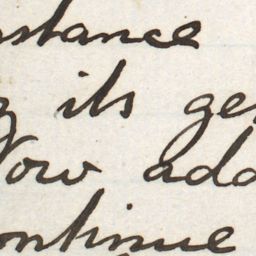 stance
its ge
Now add
ontinue